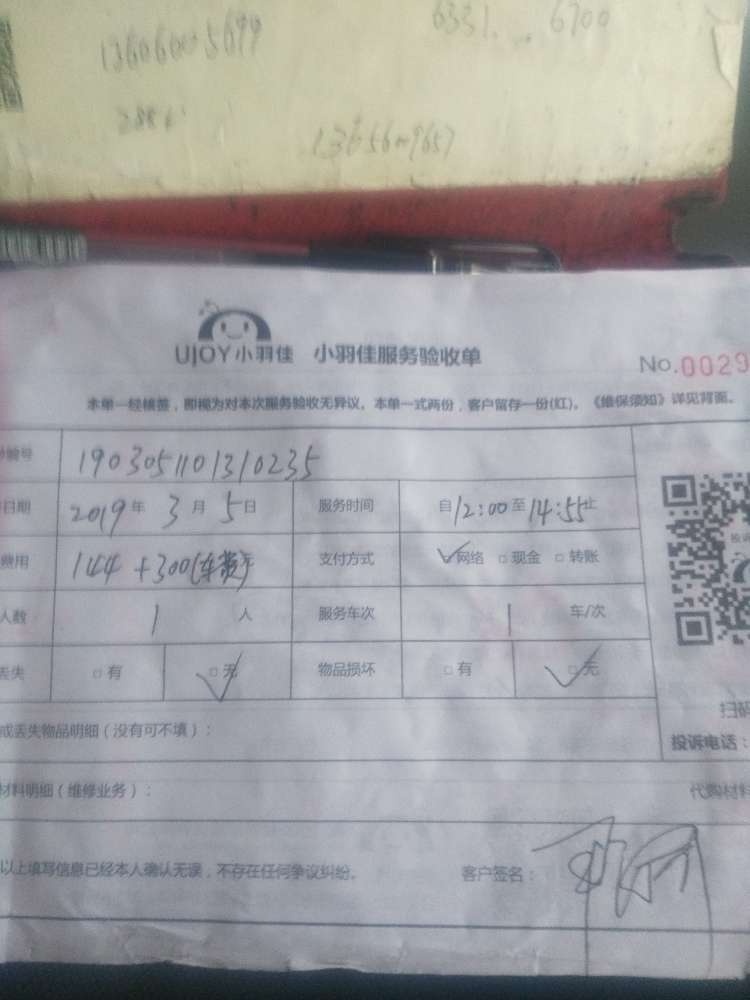 13606005699
6331. .. 6700
2886
UJOY小羽佳 小羽佳服务验收单
No.0029
本单一经核签，即视为对本次服务验收无异议。本单一式两份，客户留存一份(红)。《维保须知》详见背面。
编号 1903051101310235
日期 2019年 3月 5日 服务时间 自12:00至14:55止
费用 144 +300(车费) 支付方式 ☑网络 □现金 □转账
人数 1 人 服务车次 1 车/次
丢失 □有 ☑无 物品损坏 □有 ☑无
扫码
或丢失物品明细（没有可不填）：
投诉电话：
材料明细（维修业务）：
代购材料
以上填写信息已经本人确认无误，不存在任何争议纠纷。 客户签名：